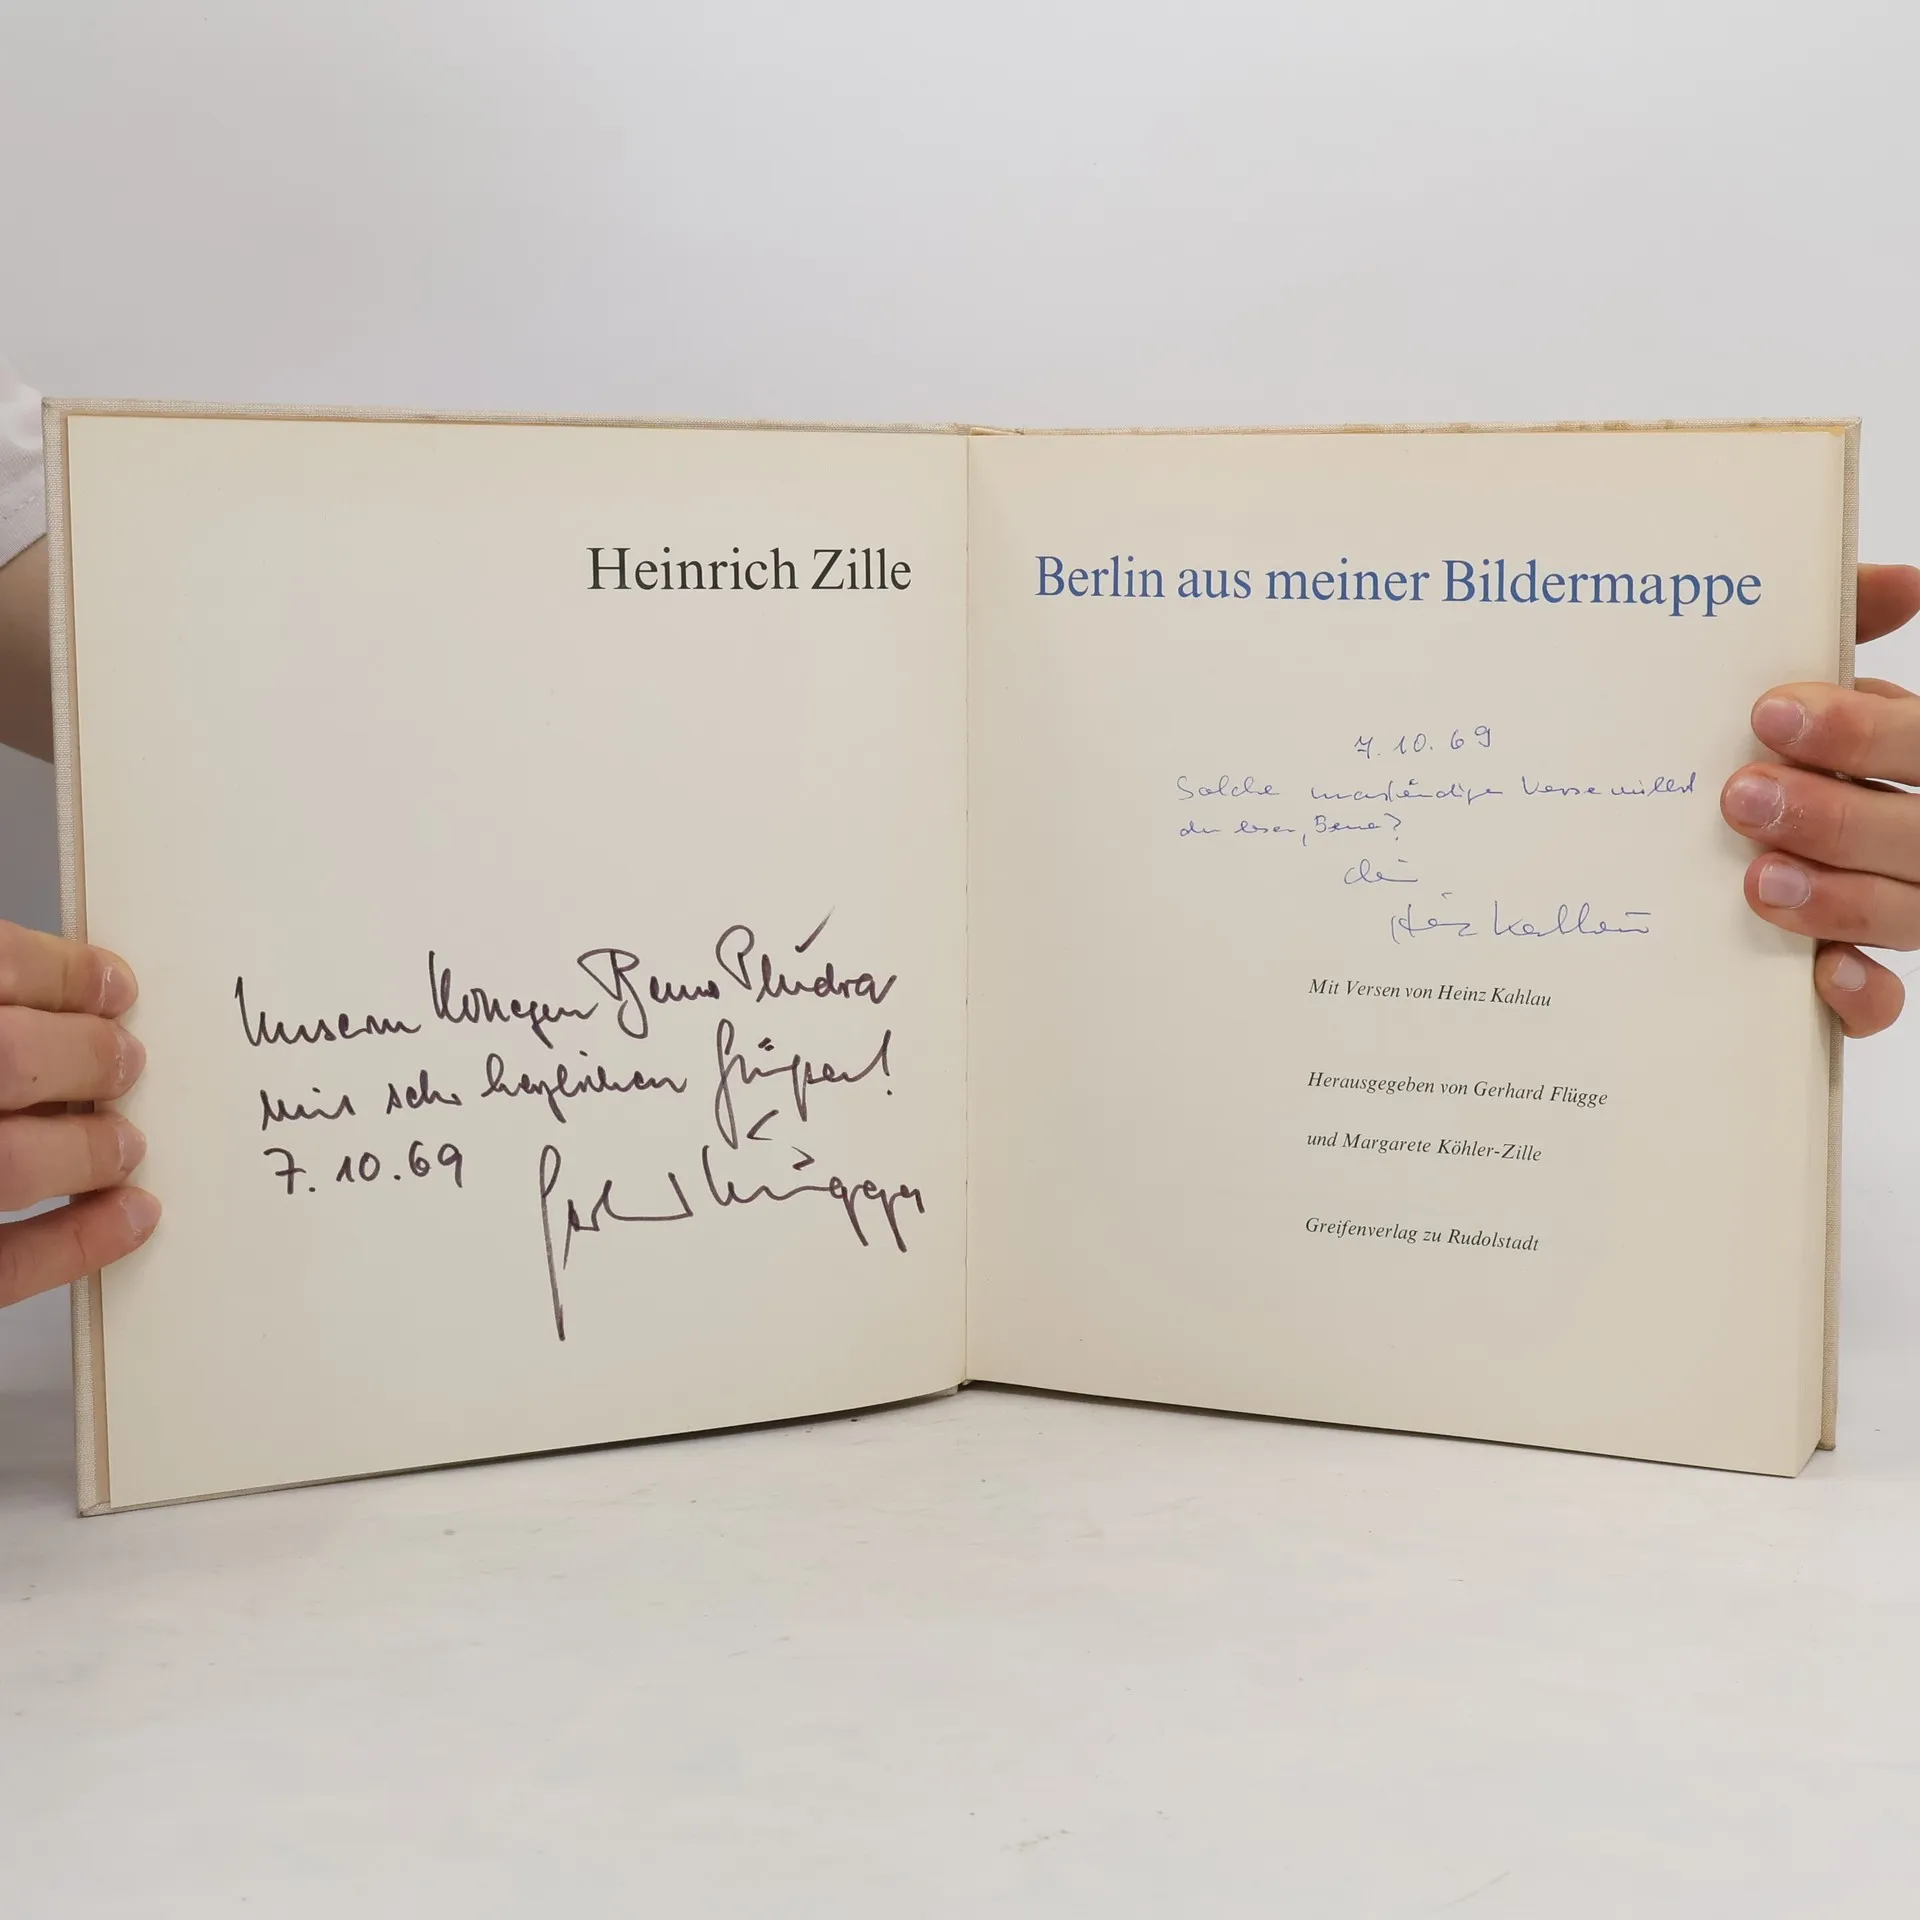 Heinrich Zille
Unserm Kollegen Benno Pludra
mit sehr herzlichen Grüßen!
7.10.69 Gerhard Flügge
Berlin aus meiner Bildermappe
7. 10. 69
Solche unanständigen Verse willst
du lesen, Benno?
dein
Heinz Kahlau
Mit Versen von Heinz Kahlau
Herausgegeben von Gerhard Flügge
und Margarete Köhler-Zille
Greifenverlag zu Rudolstadt